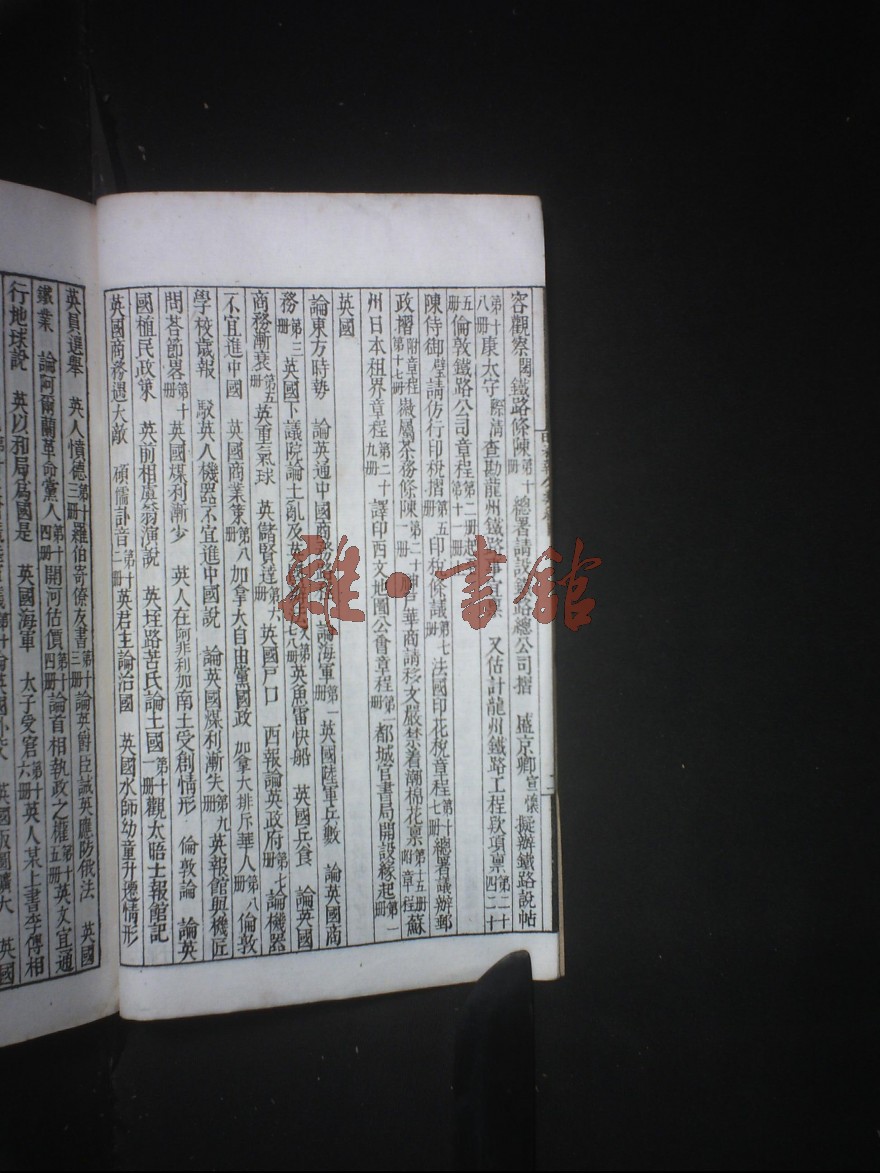 容觀察閎鐵路條陳第十冊 總署請設鐵路總公司摺 盛京卿宣懷擬辦鐵路說帖
第十八冊康太守際清查勘龍州鐵路事宜 又估計龍州鐵路工程欵項禀第二十四
五冊倫敦鐵路公司章程第二冊起第十一冊
陳侍御璧請仿行印稅摺第五冊印稅條議第七冊法國印花稅章程第十七冊總署議辦郵
政摺附章程第十七冊徽屬茶務條陳第二十一冊 華商請移文嚴禁着潮棉花禀第十五冊附章程蘇
州日本租界章程第二十九冊譯印西文地圖公會章程第一冊都城官書局開設緣起第一冊
英國
論東方時勢 論英通中國商務 論海軍第一冊英國陸軍兵數 論英國商
務第三冊 英國下議院論土亂及英 七八冊英魚雷快船 英國兵食 論英國
商務漸衰第五冊英重氣球 英儲賢達第六冊英國戶口 西報論英政府第七冊論機器
不宜進中國 英國商業策第八冊加拿大自由黨國政 加拿大排斥華人第八冊倫敦
學校歲報 駁英人機器不宜進中國說 論英國煤利漸失第九冊英報館與機匠
問答節畧第十冊英國煤利漸少 英人在阿非利加南土受創情形 倫敦論 論英
國植民政策 英前相盧翁演說 英垤路苦氏論土國第十一冊觀太晤士報館記
英國商務遇大敵 碩儒訃音第十二冊英君主論治國 英國水師幼童升擢情形
英員選舉 英人憤德第十三冊羅伯奇僚友書第十三冊論英爵臣誡英應防俄法 英國
鐵業 論阿爾蘭革命黨人第十四冊開河估價第十四冊論首相執政之權第十五冊英文宜通
行地球說 英以和局爲國是 英國海軍 太子受窘第十六冊英人某上書李傅相
英國版圖廣大 英國
雜·書館